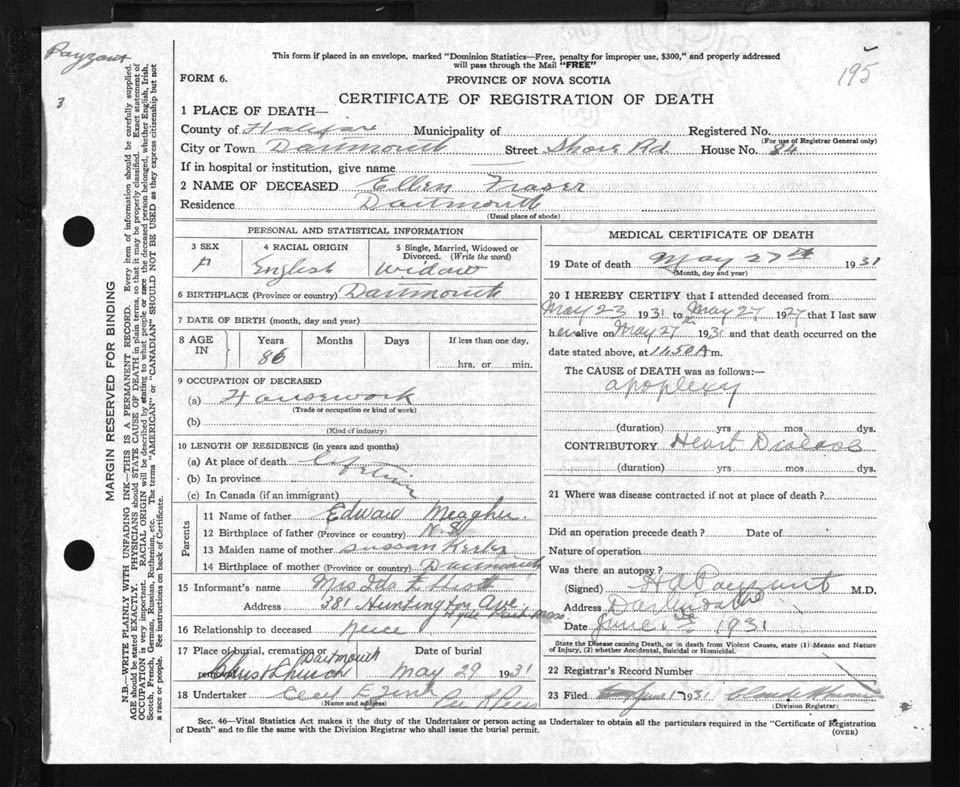 Payzant
3
195
This form if placed in an envelope, marked "Dominion Statistics—Free, penalty for improper use, $300," and properly addressed
will pass through the Mail "FREE"
FORM 6.
PROVINCE OF NOVA SCOTIA
CERTIFICATE OF REGISTRATION OF DEATH
1 PLACE OF DEATH—
County of Halifax Municipality of Registered No.
(For use of Registrar General only)
City or Town Dartmouth Street Shore Rd House No. 84
If in hospital or institution, give name
2 NAME OF DECEASED Ellen Fraser
Residence Dartmouth
(Usual place of abode)
MARGIN RESERVED FOR BINDING
N.B.—WRITE PLAINLY WITH UNFADING INK—THIS IS A PERMANENT RECORD. Every item of information should be carefully supplied.
AGE should be stated EXACTLY. PHYSICIANS should STATE CAUSE OF DEATH in plain terms, so that it may be properly classified. Exact statement of
OCCUPATION is very important. RACIAL ORIGIN will be described by stating to what people or race the deceased person belonged, whether English, Irish,
Scotch, French, German, Russian, Ruthenian, etc. The terms "AMERICAN" or "CANADIAN" SHOULD NOT BE USED as they express citizenship but not
a race or people. See instructions on back of Certificate.
PERSONAL AND STATISTICAL INFORMATION
3 SEX
4 RACIAL ORIGIN English
5 Single, Married, Widowed or
Divorced. (Write the word)
Widow
6 BIRTHPLACE (Province or country) Dartmouth
7 DATE OF BIRTH (month, day and year)
8 AGE IN
Years Months Days If less than one day,
86 hrs. or min.
9 OCCUPATION OF DECEASED
(a) Housework
(Trade or occupation or kind of work)
(b)
(Kind of industry)
10 LENGTH OF RESIDENCE (in years and months)
(a) At place of death Lifetime
(b) In province
(c) In Canada (if an immigrant)
Parents
11 Name of father Edward Meagher
12 Birthplace of father (Province or country) N.S.
13 Maiden name of mother Sussan
14 Birthplace of mother (Province or country) Dartmouth
15 Informant's name Mrs Ida E
Address 381 Huntington Ave
Hyde Park Mass
16 Relationship to deceased Neice
17 Place of burial, cremation or removal Date of burial
Christ Church Dartmouth May 29 1931
18 Undertaker Cecil E Zink
(Name and address)
MEDICAL CERTIFICATE OF DEATH
19 Date of death May 27th 1931
(Month, day and year)
20 I HEREBY CERTIFY that I attended deceased from
May 23 1931 to May 27 1927 that I last saw
her alive on May 27th 1931 and that death occurred on the
date stated above, at 11.50 A m.
The CAUSE OF DEATH was as follows:—
apoplexy
(duration) yrs mos dys.
CONTRIBUTORY Heart Disease
(duration) yrs mos dys.
21 Where was disease contracted if not at place of death?
Did an operation precede death? Date of
Nature of operation
Was there an autopsy?
(Signed) H A Payzant M.D.
Address Dartmouth
Date June 1st 1931
State the Disease causing Death, or in death from Violent Causes, state (1) Means and Nature
of Injury, (2) whether Accidental, Suicidal or Homicidal.
22 Registrar's Record Number
23 Filed June 1 1931
(Division Registrar)
Sec. 46—Vital Statistics Act makes it the duty of the Undertaker or person acting as Undertaker to obtain all the particulars required in the "Certificate of Registration
of Death" and to file the same with the Division Registrar who shall issue the burial permit.
(OVER)